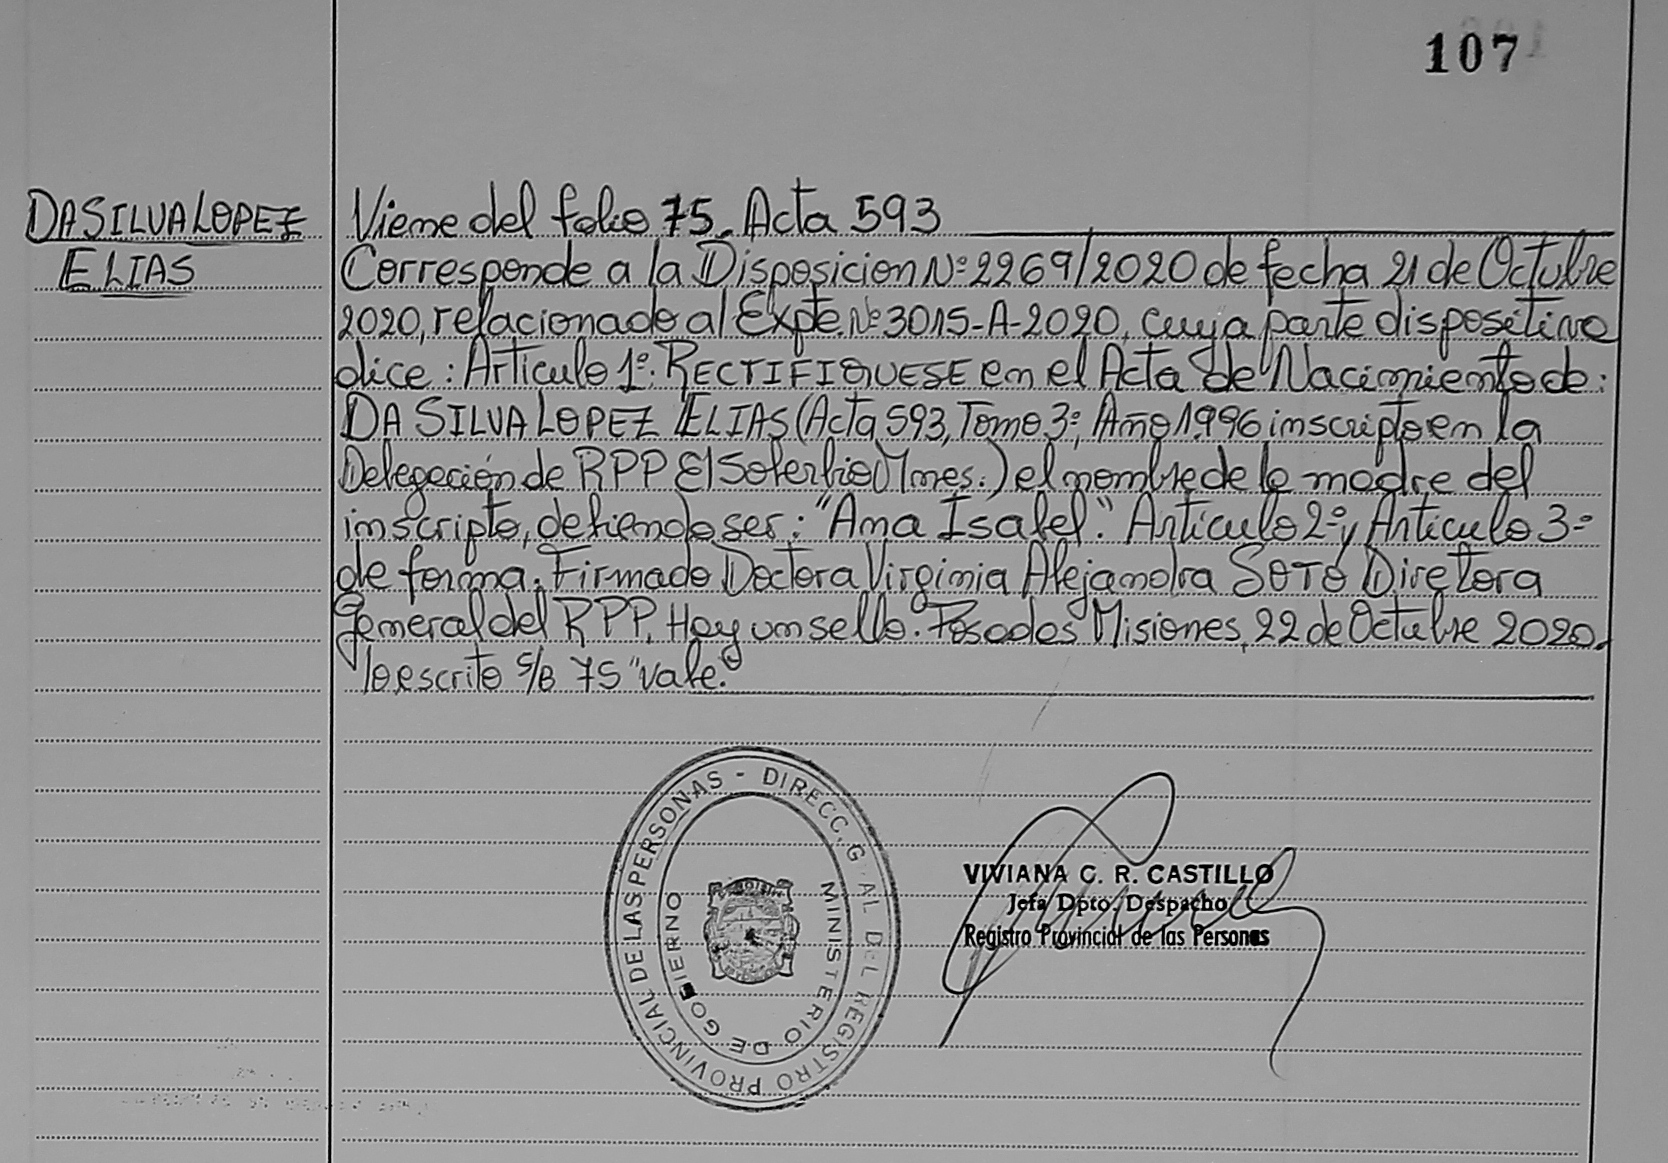 107
DA SILVA LOPEZ
ELIAS
Viene del folio 75. Acta 593
Corresponde a la Disposicion Nº 2269/2020 de fecha 21 de Octubre
2020, relacionado al Expte. Nº 3015-A-2020, cuya parte dispositiva
dice: Articulo 1º: RECTIFIQUESE en el Acta de Nacimiento de:
DA SILVA LOPEZ ELIAS (Acta 593, Tomo 3º, Año 1996 inscripto en la
Delegación de RPP El Soberbio Mnes.) el nombre de la madre del
inscripto, debiendo ser: "Ana Isabel". Articulo 2º y Articulo 3º
de forma. Firmado Doctora Virginia Alejandra SOTO Diretora
General del RPP. Hay un sello. Posadas Misiones, 22 de Octubre 2020.
lo escrito s/b 75 "Vale."
DIRECC. G.AL DEL REGISTRO PROVINCIAL DE LAS PERSONAS -
MINISTERIO DE GOBIERNO
VIVIANA C. R. CASTILLO
Jefa Dpto. Despacho
Registro Provincial de las Personas